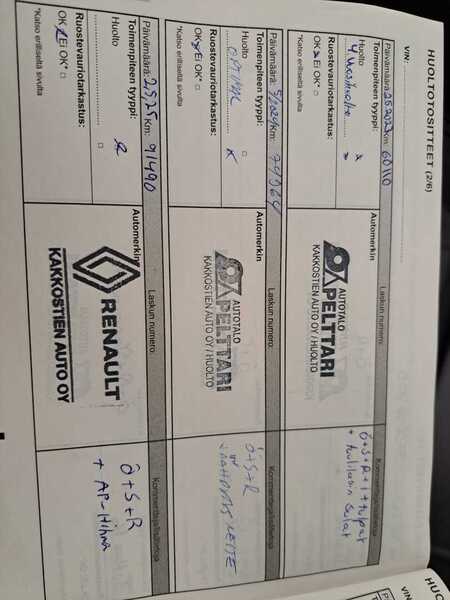 HUOLTOTOSITTEET (2/6)
VIN:
Päivämäärä: Km: 60110
Toimenpiteen tyyppi:
Huolto
Ruostevauriotarkastus:
OK □ Ei OK* □
*Katso erillisetä sivulta
Automerkin
AUTOTALO
PELTTARI
KAKKOSTIEN AUTO OY / HUOLTO
Laskun numero:
Kommentteja/lisätietoja
Ö+S+R+I+tulpat
+ tuulilasin sulat
Päivämäärä: 5/2024 Km:
Toimenpiteen tyyppi:
Huolto
Ruostevauriotarkastus:
OK Ei OK* □
*Katso erillisetä sivulta
Automerkin
AUTOTALO
PELTTARI
KAKKOSTIEN AUTO OY / HUOLTO
Laskun numero:
Kommentteja/lisätietoja
Ö+S+R
Päivämäärä: Km: 91490
Toimenpiteen tyyppi:
Huolto
Ruostevauriotarkastus:
OK Ei OK* □
*Katso erillisetä sivulta
Automerkin
RENAULT
KAKKOSTIEN AUTO OY
Laskun numero:
Kommentteja/lisätietoja
Ö+S+R
+ AP-Hihna
HUO
VIN